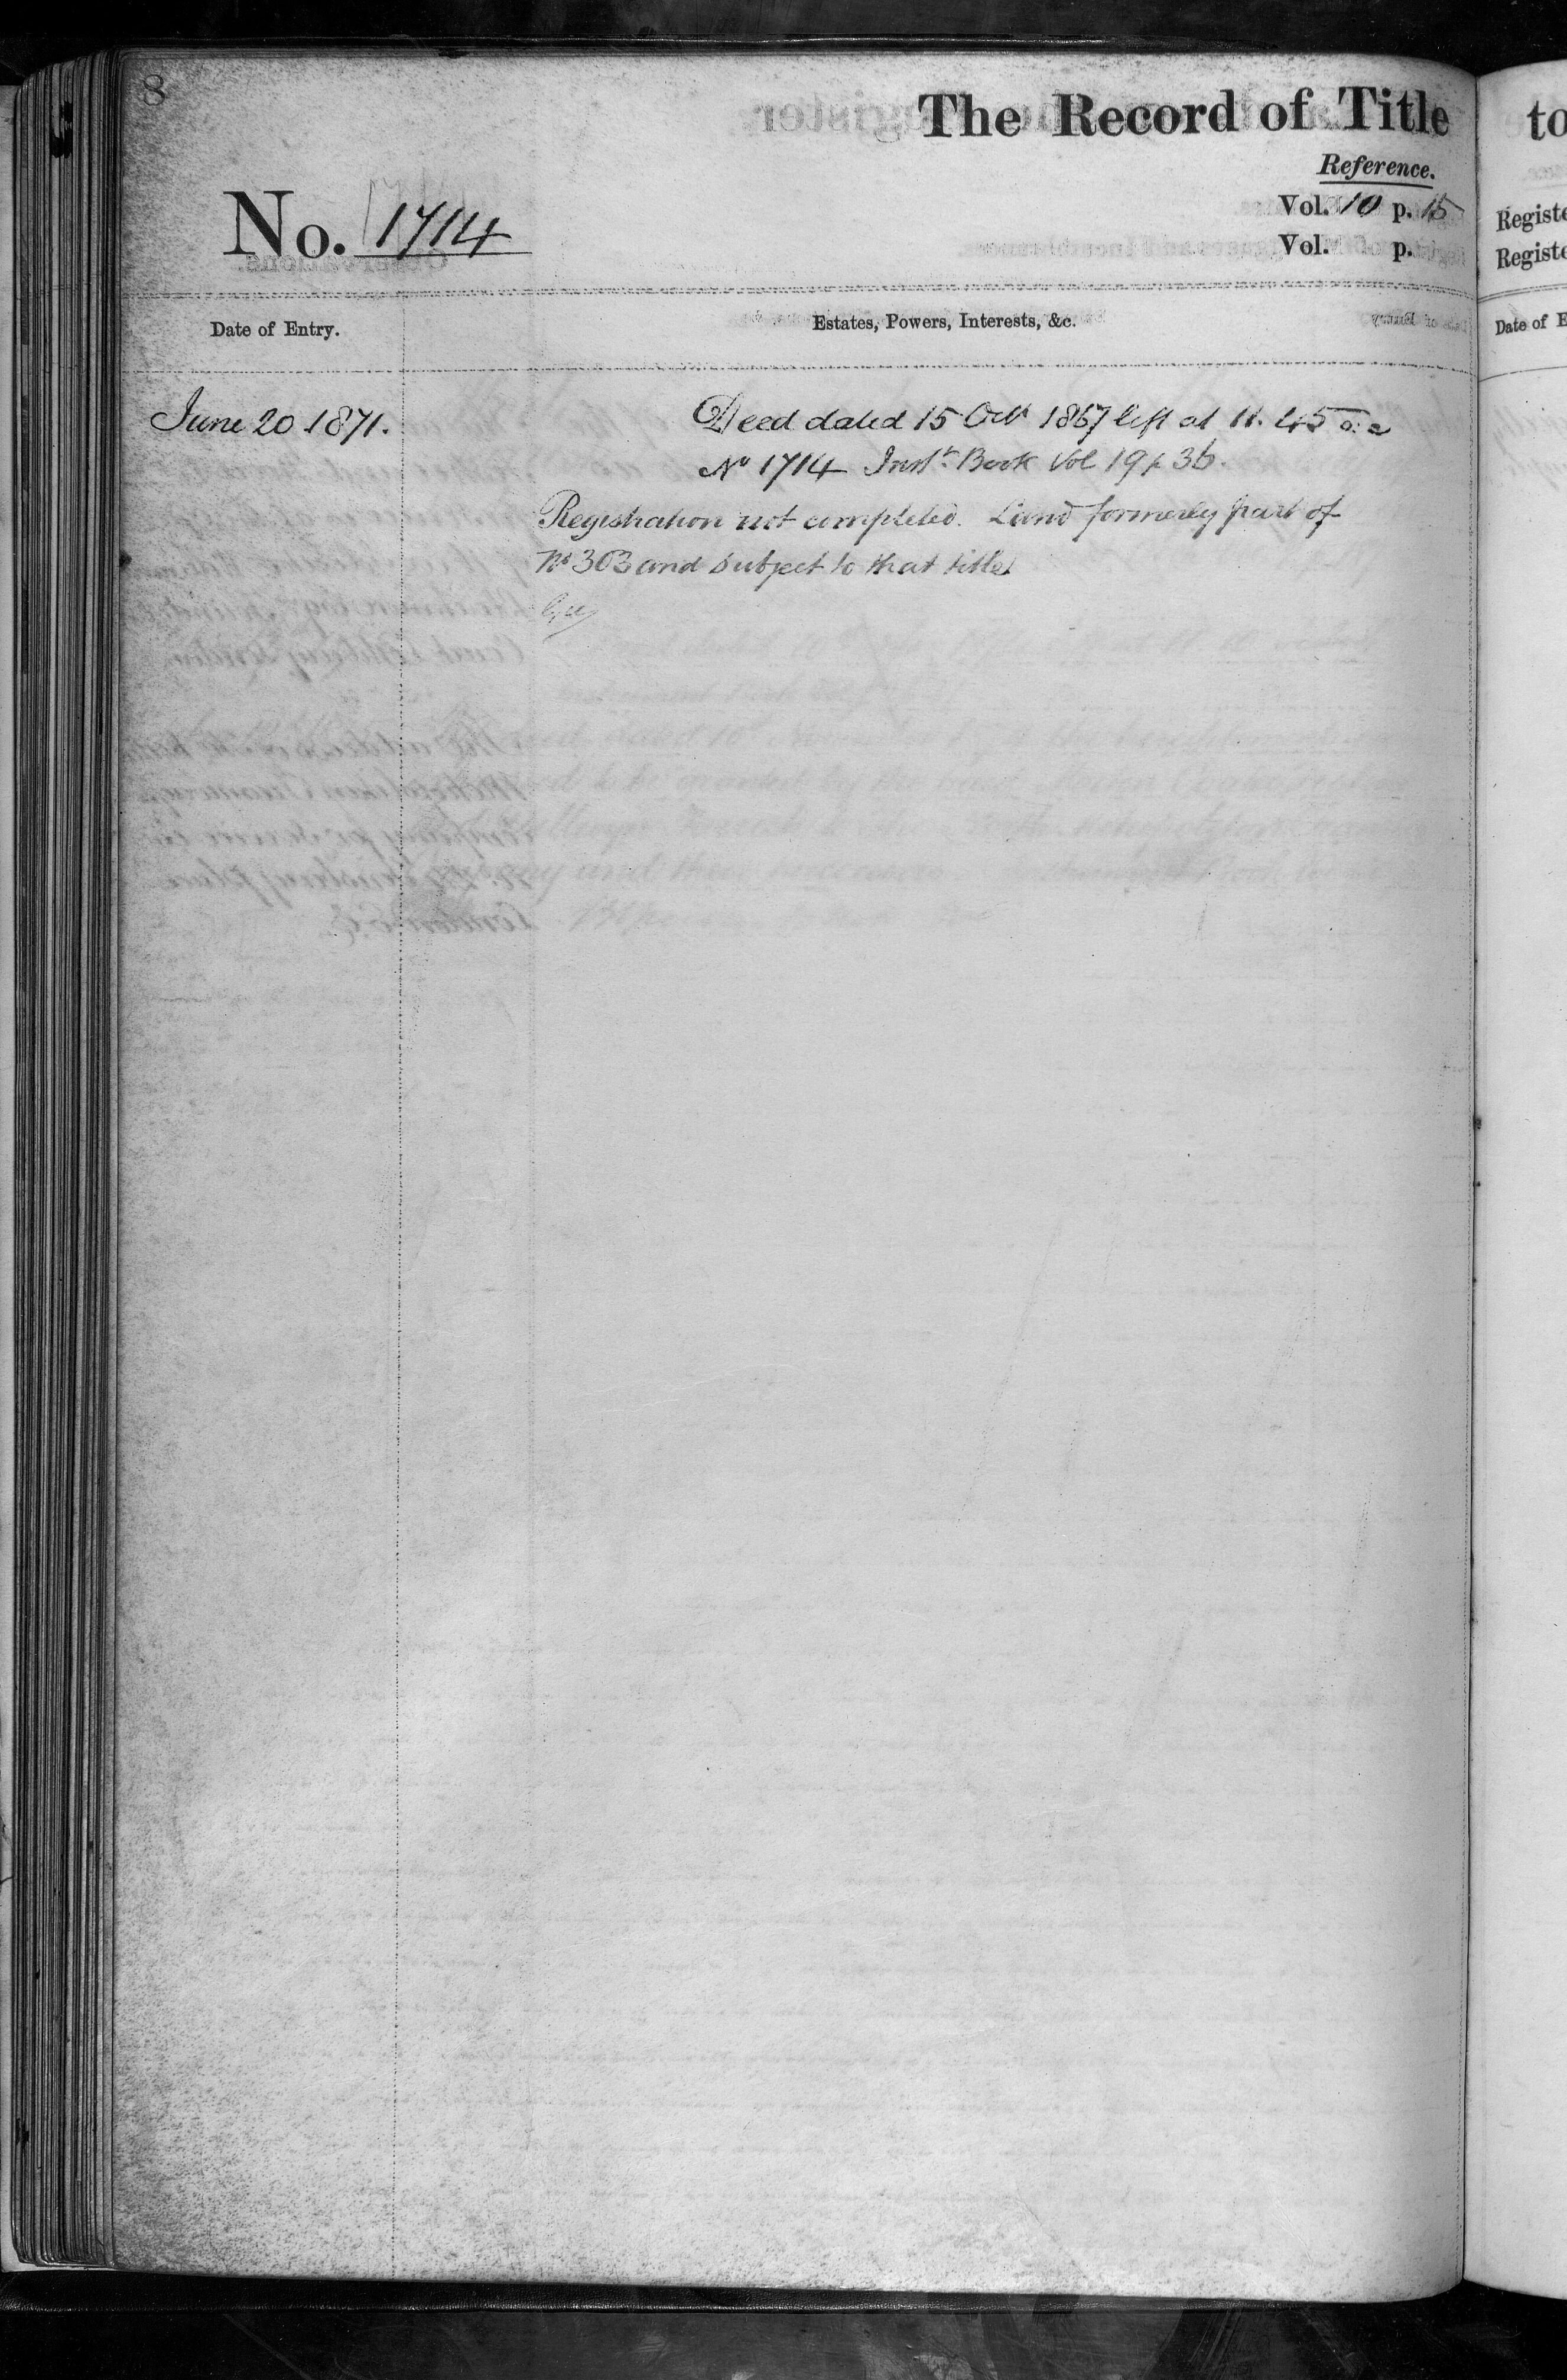 8
The Record of Title
Reference.
No. 1714
Vol. 10 p. 15
Vol. p.
Date of Entry.
Estates, Powers, Interests, &c.
June 20 1871.
Deed dated 15 Octr 1867 left at 11. 45
No 1714 Instt. Book Vol 19 p 36.
Registration not completed. Land formerly part of
No 303 and subject to that title
to
Registe
Registe
Date of E